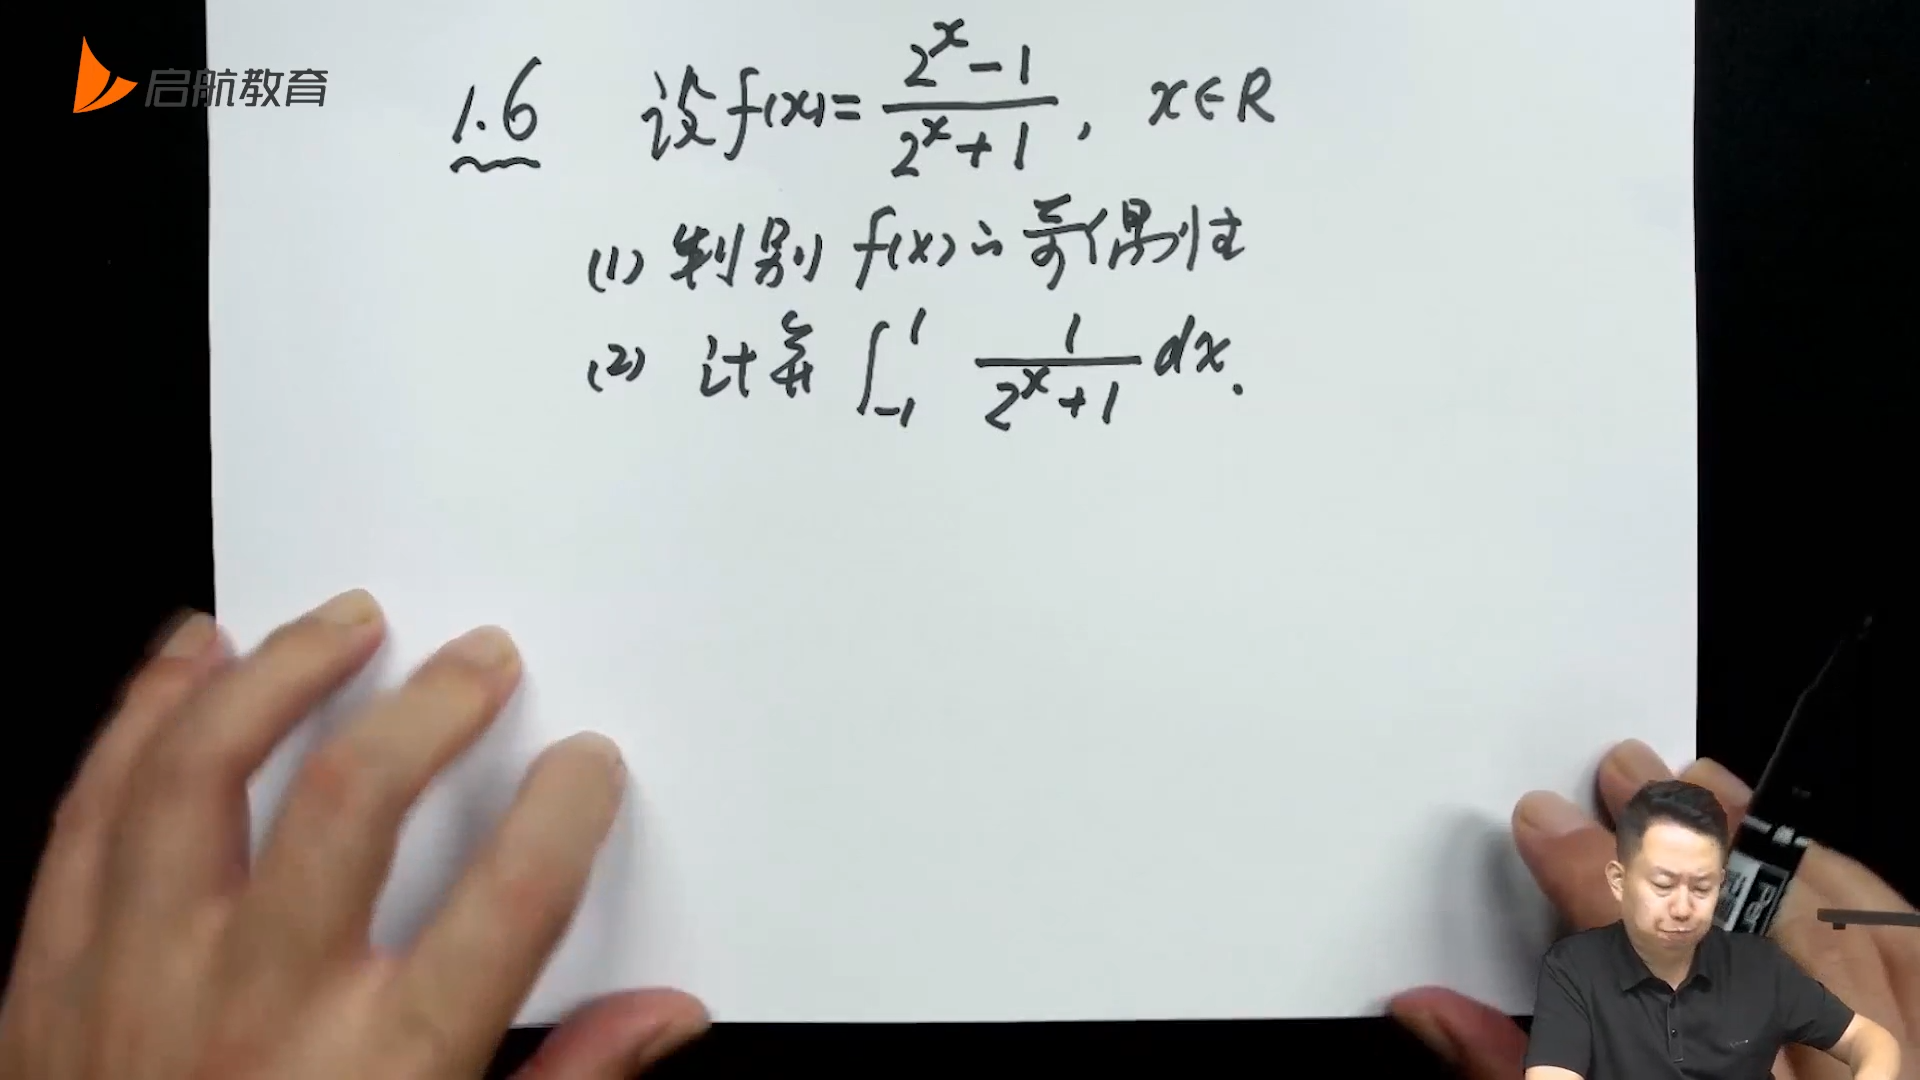 启航教育
1.6 设f(x)=\frac{2^x-1}{2^x+1}, x∈R
(1) 判别 f(x)的奇偶性
(2) 计算 ∫_{-1}^{1} \frac{1}{2^x+1}dx.